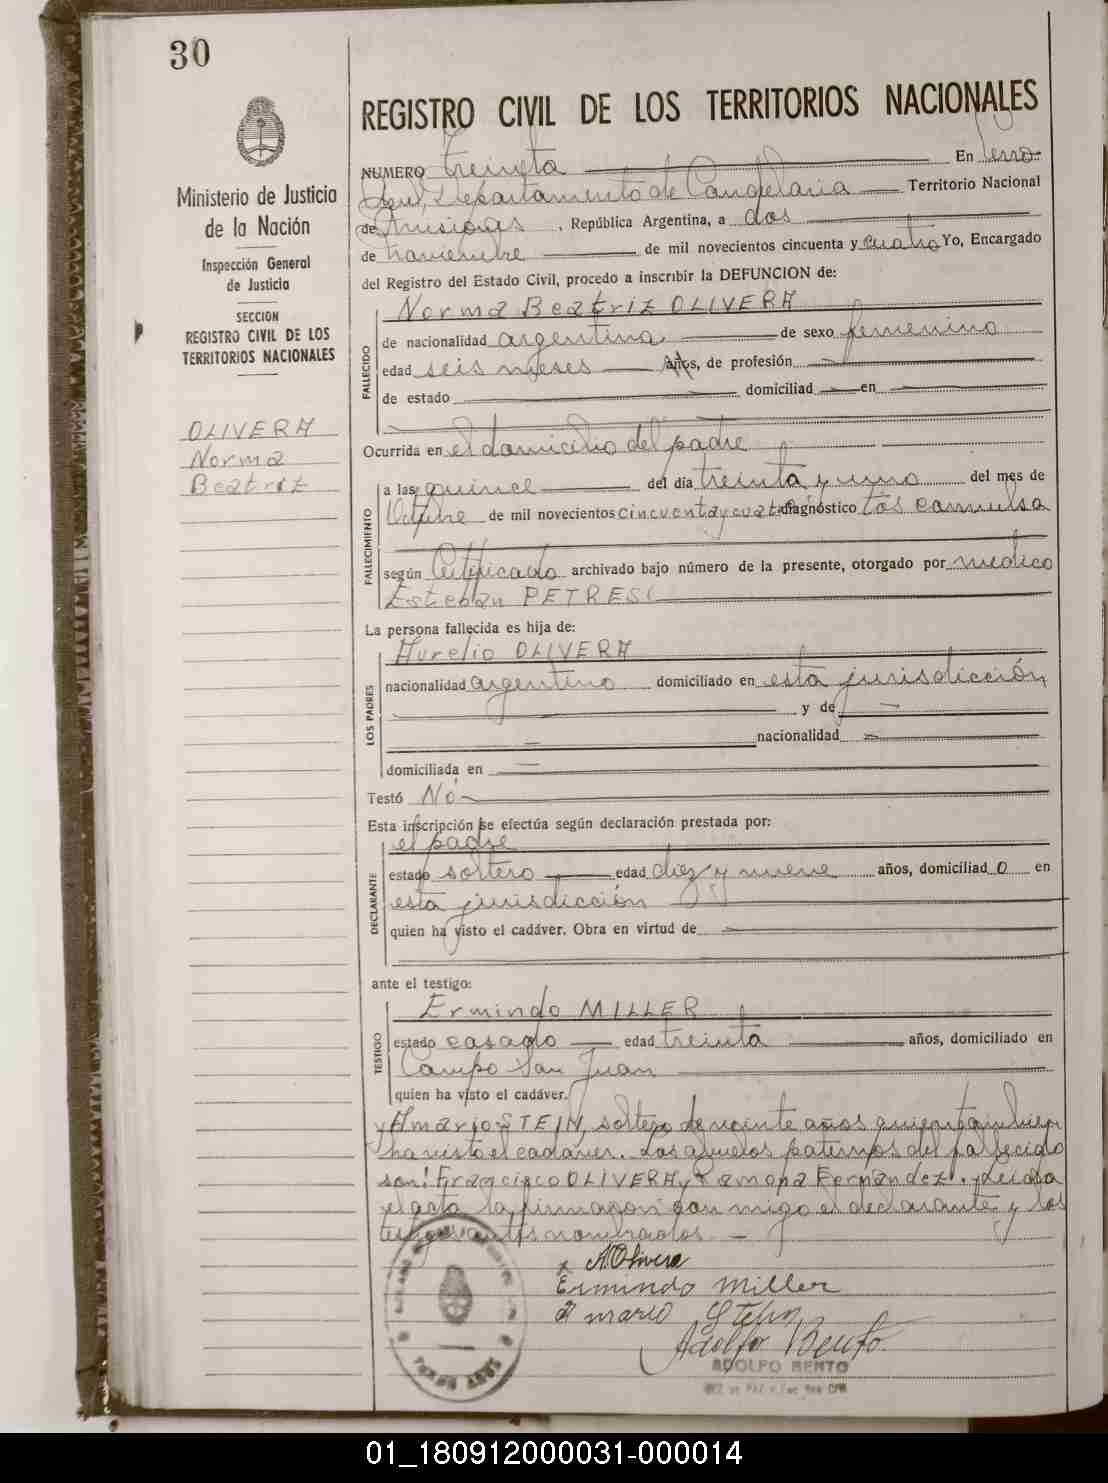 30
REGISTRO CIVIL DE LOS TERRITORIOS NACIONALES
Ministerio de Justicia
de la Nación
Inspección General
de Justicia
SECCION
REGISTRO CIVIL DE LOS
TERRITORIOS NACIONALES
OLIVERA
Norma
Beatriz
NUMERO treinta En Cerro
Departamento de Candelaria Territorio Nacional
de Misiones, República Argentina, a dos
de noviembre de mil novecientos cincuenta y cuatro Yo, Encargado
del Registro del Estado Civil, procedo a inscribir la DEFUNCION de:
Norma Beatriz OLIVERA
FALLECIDO
de nacionalidad argentina de sexo femenino
edad seis meses años, de profesión
de estado domiciliad en
Ocurrida en el domicilio del padre
FALLECIMIENTO
a las quince del día treinta y uno del mes de
Octubre de mil novecientos cincuenta y cuatro diagnóstico tos convulsa
según Certificado archivado bajo número de la presente, otorgado por medico
Esteban PETRESC
La persona fallecida es hija de:
Aurelio OLIVERA
LOS PADRES
nacionalidad argentino domiciliado en esta jurisdicción
y de
nacionalidad
domiciliada en
Testó Nó
Esta inscripción se efectúa según declaración prestada por:
el padre
DECLARANTE
estado soltero edad diez y nueve años, domiciliad o en
esta jurisdicción
quien ha visto el cadáver. Obra en virtud de
ante el testigo:
Ermindo MILLER
TESTIGO
estado casado edad treinta años, domiciliado en
Campo San Juan
quien ha visto el cadáver.
y Amario STEIN, soltero de veinte años quien tambien
ha visto el cadáver. Los abuelos paternos del fallecido
son: Francisco OLIVERA y Ramona Fernández. Leida
el acta la firmaron con migo el declarante y los
testigos antes nombrados.
A. Olivera
Ermindo Miller
Amario Stein
Adolfo Bento
ADOLFO BENTO
01_180912000031-000014